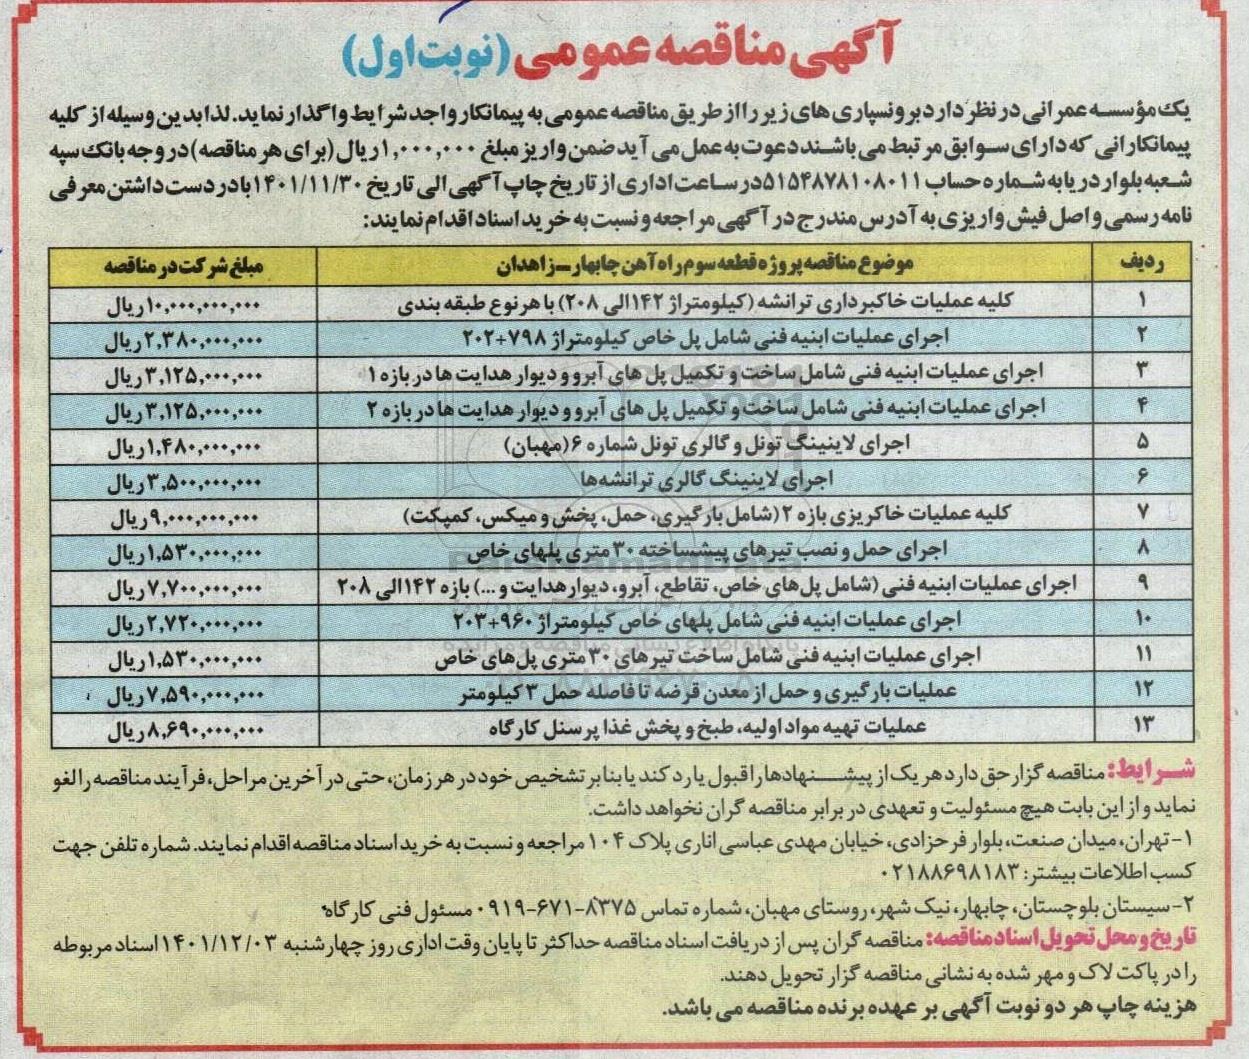 آگهی مناقصه عمومی (نوبت اول)
یک مؤسسه عمرانی در نظر دارد برونسپاری های زیر را از طریق مناقصه عمومی به پیمانکار واجد شرایط واگذار نماید. لذا بدین وسیله از کلیه
پیمانکارانی که دارای سوابق مرتبط می باشند دعوت به عمل می آید ضمن واریز مبلغ ۱,۰۰۰,۰۰۰ ریال (برای هر مناقصه) در وجه بانک سپه
شعبه بلوار دریا به شماره حساب ۵۱۵۴۸۷۸۱۰۸۰۱۱ در ساعت اداری از تاریخ چاپ آگهی الی تاریخ ۱۴۰۱/۱۱/۳۰ با در دست داشتن معرفی
نامه رسمی و اصل فیش واریزی به آدرس مندرج در آگهی مراجعه و نسبت به خرید اسناد اقدام نمایند:
ردیف موضوع مناقصه پروژه قطعه سوم راه آهن چابهار ـ زاهدان مبلغ شرکت در مناقصه
۱ کلیه عملیات خاکبرداری ترانشه (کیلومتراژ ۱۴۲ الی ۲۰۸) با هر نوع طبقه بندی ۱۰,۰۰۰,۰۰۰,۰۰۰ ریال
۲ اجرای عملیات ابنیه فنی شامل پل خاص کیلومتراژ ۷۹۸+۲۰۲ ۲,۳۸۰,۰۰۰,۰۰۰ ریال
۳ اجرای عملیات ابنیه فنی شامل ساخت و تکمیل پل های آبرو و دیوار هدایت ها در بازه ۱ ۳,۱۲۵,۰۰۰,۰۰۰ ریال
۴ اجرای عملیات ابنیه فنی شامل ساخت و تکمیل پل های آبرو و دیوار هدایت ها در بازه ۲ ۳,۱۲۵,۰۰۰,۰۰۰ ریال
۵ اجرای لاینینگ تونل و گالری تونل شماره ۶ (مهبان) ۱,۴۸۰,۰۰۰,۰۰۰ ریال
۶ اجرای لاینینگ گالری ترانشه‌ها ۳,۵۰۰,۰۰۰,۰۰۰ ریال
۷ کلیه عملیات خاکریزی بازه ۲ (شامل بارگیری، حمل، پخش و میکس، کمپکت) ۹,۰۰۰,۰۰۰,۰۰۰ ریال
۸ اجرای حمل و نصب تیرهای پیشساخته ۳۰ متری پلهای خاص ۱,۵۳۰,۰۰۰,۰۰۰ ریال
۹ اجرای عملیات ابنیه فنی (شامل پل‌های خاص، تقاطع، آبرو، دیوار هدایت و ...) بازه ۱۴۲ الی ۲۰۸ ۷,۷۰۰,۰۰۰,۰۰۰ ریال
۱۰ اجرای عملیات ابنیه فنی شامل پلهای خاص کیلومتراژ ۹۶۰+۲۰۳ ۲,۷۲۰,۰۰۰,۰۰۰ ریال
۱۱ اجرای عملیات ابنیه فنی شامل ساخت تیرهای ۳۰ متری پل‌های خاص ۱,۵۳۰,۰۰۰,۰۰۰ ریال
۱۲ عملیات بارگیری و حمل از معدن قرضه تا فاصله حمل ۳ کیلومتر ۷,۵۹۰,۰۰۰,۰۰۰ ریال
۱۳ عملیات تهیه مواد اولیه، طبخ و پخش غذا پرسنل کارگاه ۸,۶۹۰,۰۰۰,۰۰۰ ریال
ParsNamadData
پایگاه اطلاع رسانی مناقصه و مزایده
شرایط: مناقصه گزار حق دارد هر یک از پیشنهادها را قبول یا رد کند یا بنابر تشخیص خود در هر زمان، حتی در آخرین مراحل، فرآیند مناقصه را لغو
نماید و از این بابت هیچ مسئولیت و تعهدی در برابر مناقصه گران نخواهد داشت.
۱- تهران، میدان صنعت، بلوار فرحزادی، خیابان مهدی عباسی اناری پلاک ۱۰۴ مراجعه و نسبت به خرید اسناد مناقصه اقدام نمایند. شماره تلفن جهت
کسب اطلاعات بیشتر: ۰۲۱۸۸۶۹۸۱۸۳
۲- سیستان بلوچستان، چابهار، نیک شهر، روستای مهبان، شماره تماس ۸۳۷۵-۶۷۱-۰۹۱۹ مسئول فنی کارگاه
تاریخ و محل تحویل اسناد مناقصه: مناقصه گران پس از دریافت اسناد مناقصه حداکثر تا پایان وقت اداری روز چهارشنبه ۱۴۰۱/۱۲/۰۳ اسناد مربوطه
را در پاکت لاک و مهر شده به نشانی مناقصه گزار تحویل دهند.
هزینه چاپ هر دو نوبت آگهی بر عهده برنده مناقصه می باشد.